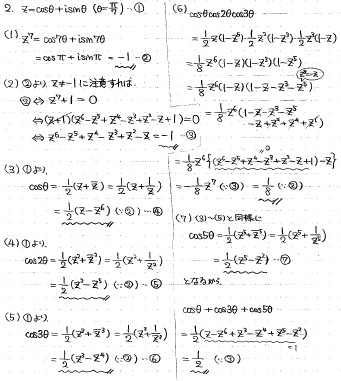 2. z=cosθ+isinθ (θ=π/7) …①
(1) z⁷=cos7θ+isin7θ
=cosπ+isinπ = -1 …②
(2) ②より z≠-1に注意すれば
② ⇔ z⁷+1=0
⇔(z+1)(z⁶-z⁵+z⁴-z³+z²-z+1)=0
⇔ z⁶-z⁵+z⁴-z³+z²-z=-1 …③
(3) ①より、
cosθ=1/2(z+z̄)=1/2(z+1/z)
=1/2(z-z⁶) (∵②) …④
(4) ①より、
cos2θ=1/2(z²+z̄²)=1/2(z²+1/z²)
=1/2(z²-z⁵) (∵②) …⑤
(5) ①より
cos3θ=1/2(z³+z̄³)=1/2(z³+1/z³)
=1/2(z³-z⁴) (∵②) …⑥
(6)
cosθcos2θcos3θ
=1/2z(1-z⁵)・1/2z²(1-z³)・1/2z³(1-z)
=1/8z⁶(1-z)(1-z³)(1-z⁵)
=1/8z⁶(1-z)(1-z³-z⁵
=1/8z⁶(1-z-z³-z⁵
-z+z⁴+z⁶)
=1/8z⁶{(z⁶-z⁵+z⁴-z³+z²-z+1)-z}
=-1/8z⁷(∵③) =1/8(∵②)
(7) (3)~(5)と同様に
cos5θ=1/2(z⁵+z̄⁵)=1/2(z⁵+1/z⁵)
=1/2(z⁵-z²) …⑦
となるから、
cosθ+cos3θ+cos5θ
=1/2(z-z⁶+z³-z⁴+z⁵-z²)
=1
=1/2 (∵③)